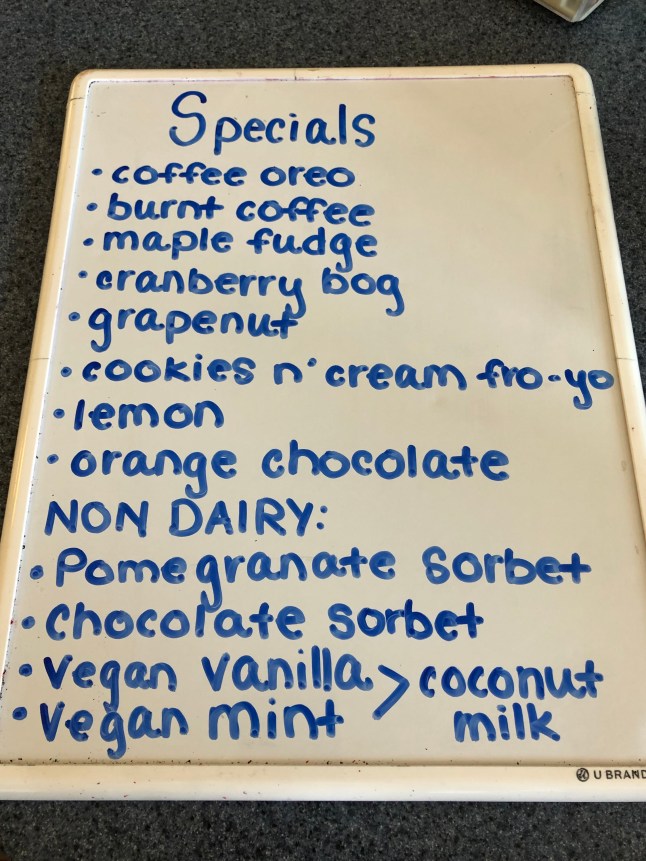 Specials
• coffee oreo
• burnt coffee
• maple fudge
• cranberry bog
• grapenut
• cookies n' cream fro-yo
• lemon
• orange chocolate
NON DAIRY:
• Pomegranate sorbet
• Chocolate sorbet
• Vegan vanilla > coconut
• Vegan mint milk
U BRAND